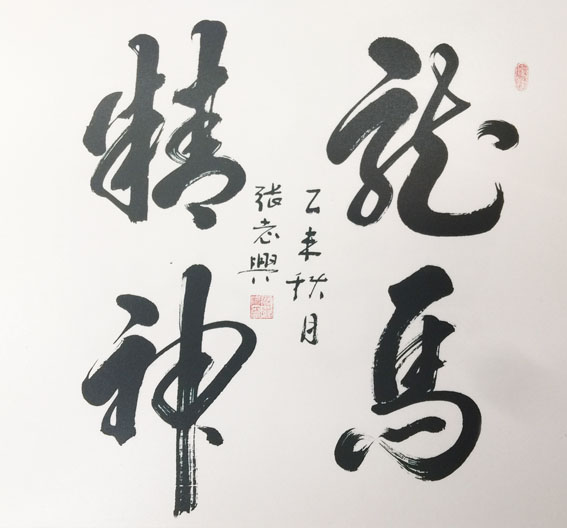 龍馬
精神
乙未秋月
張志興